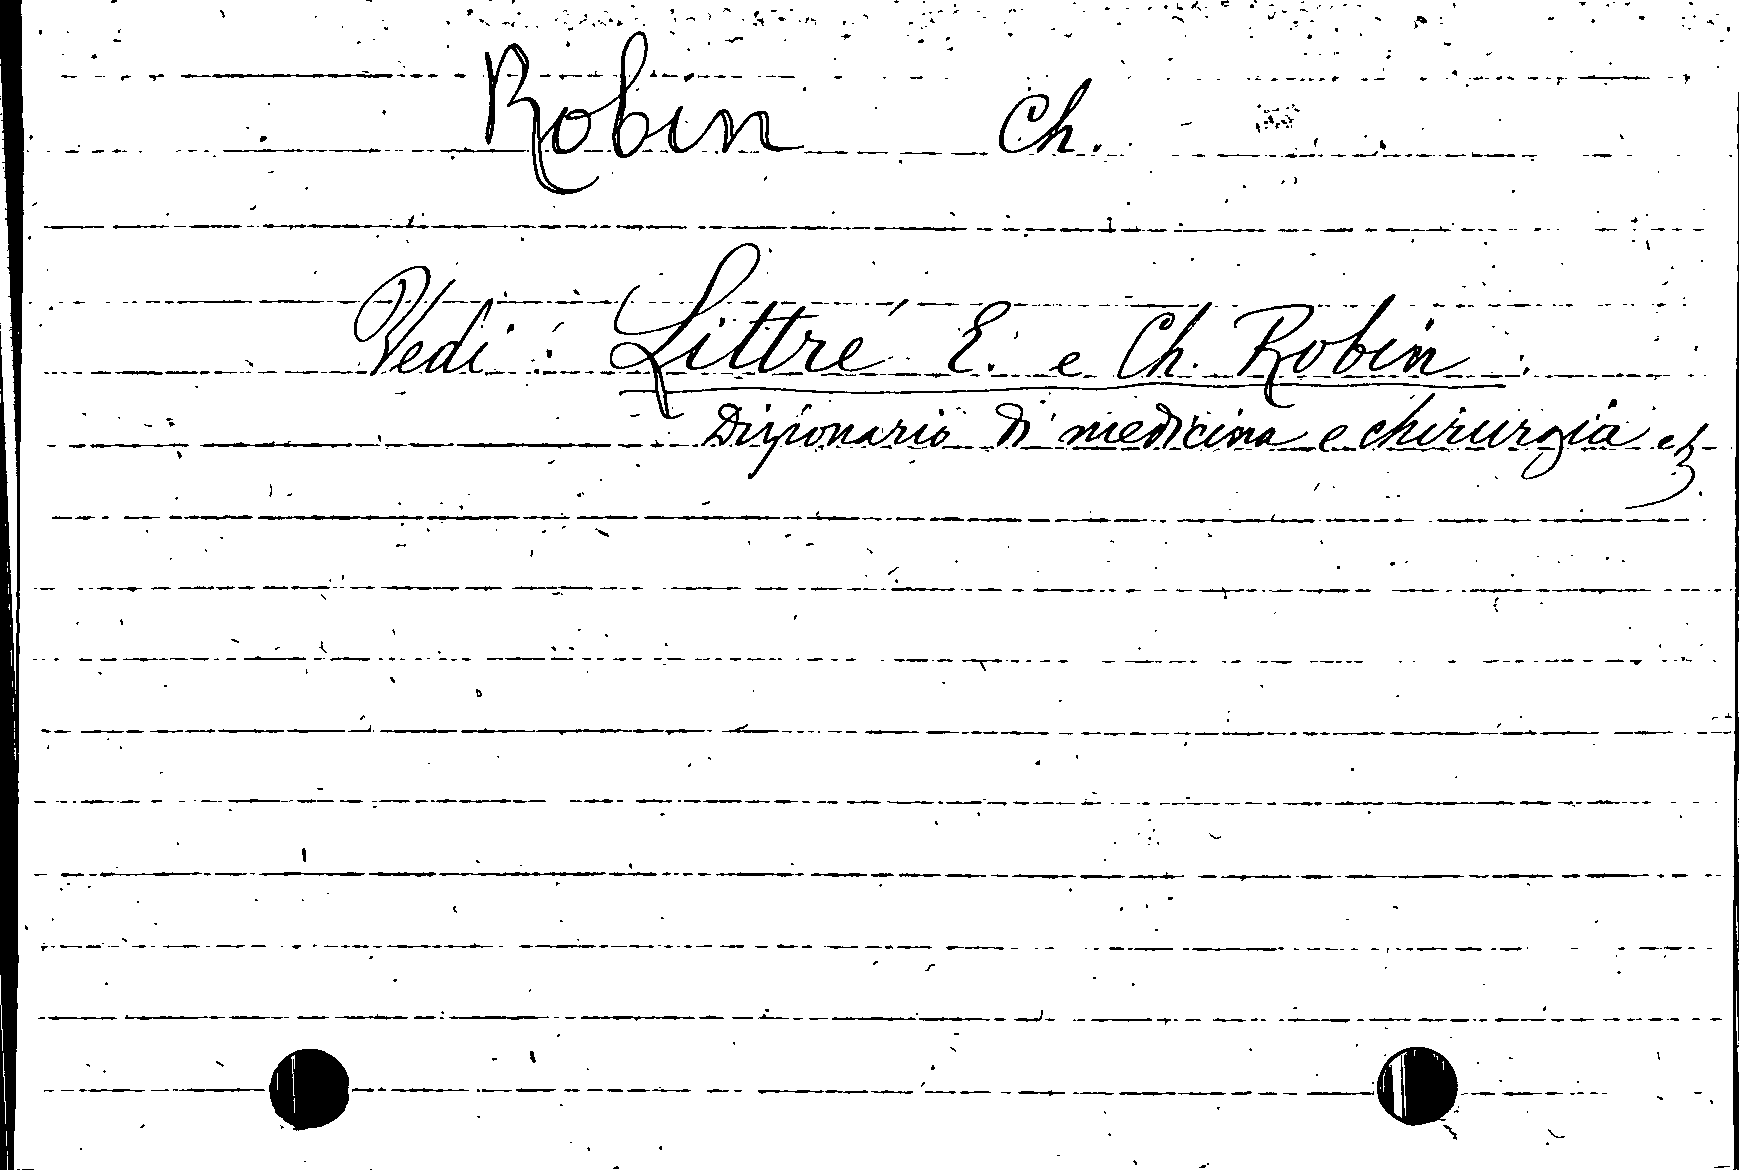 Robin Ch.
Vedi: Littré E. e Ch. Robin.
Dizionario di medicina e chirurgia